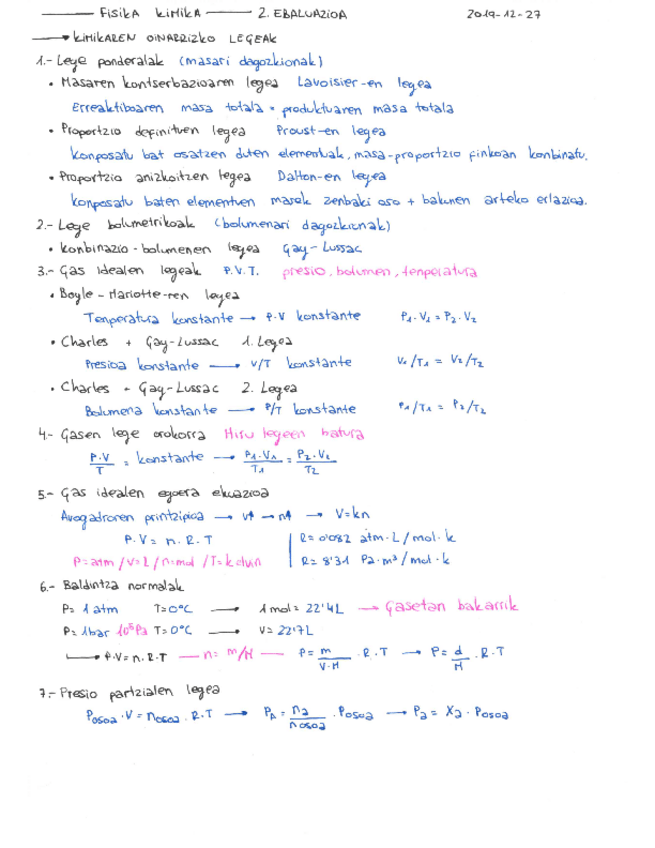 FisikA KiMikA 2. EBALUAZIOA 2019-12-27
KiMiKAREN OINARRIZKO LEGEAK
1.- Lege ponderalak (masari dagozkionak)
• Masaren kontserbazioaren legea Lavoisier-en legea
Erreaktiboaren masa totala = produktuaren masa totala
• Proportzio definituen legea Proust-en legea
Konposatu bat osatzen duten elementuak, masa-proportzio finkoan konbinatu.
• Proportzio anizkoitzen legea Dalton-en legea
Konposatu baten elementuen masek zenbaki oso + bakunen arteko erlazioa.
2.- Lege bolumetrikoak (bolumenari dagozkionak)
• Konbinazio-bolumenen legea Gay-Lussac
3.- Gas idealen legeak P.V.T. presio, bolumen, tenperatura
• Boyle-Mariotte-ren legea
Tenperatura konstante → P.V konstante P₁.V₁ = P₂.V₂
• Charles + Gay-Lussac 1. Legea
Presioa konstante → V/T konstante V₁/T₁ = V₂/T₂
• Charles + Gay-Lussac 2. Legea
Bolumena konstante → P/T konstante P₁/T₁ = P₂/T₂
4- Gasen lege orokorra Hiru legeen batura
P.V/T = konstante → P₁.V₁/T₁ = P₂.V₂/T₂
5.- Gas idealen egoera ekuazioa
Avogadroren printzipioa → V↑ → n↑ → V=kn
P.V = n.R.T R= 0'082 atm.L/mol.k
P=atm/V=L/n=mol/T=kelvin R= 8'31 Pa.m³/mol.k
6.- Baldintza normalak
P= 1 atm T=0°C → 1 mol = 22'4L → Gasetan bakarrik
P= 1bar 10⁵Pa T=0°C → V= 22'7L
→ P.V=n.R.T — n= m/M — P= m/V.M . R.T → P= d/M . R.T
7.- Presio partzialen legea
Posoa.V = nosoa.R.T → PA = na/nosoa . Posoa → Pa = Xa . Posoa